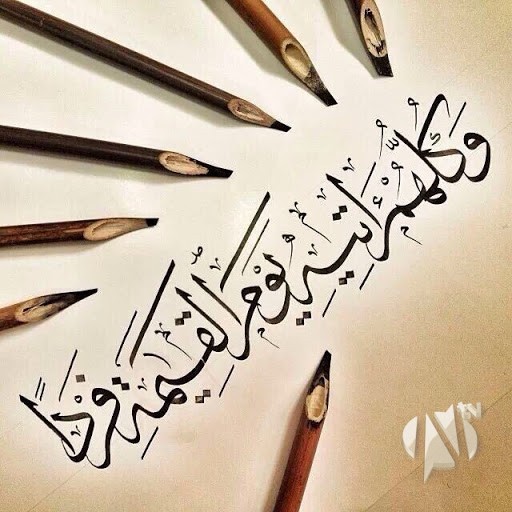 وَكُلُّهُمْ ءَاتِيهِ يَوْمَ الْقِيَٰمَةِ فَرْدًا
tv